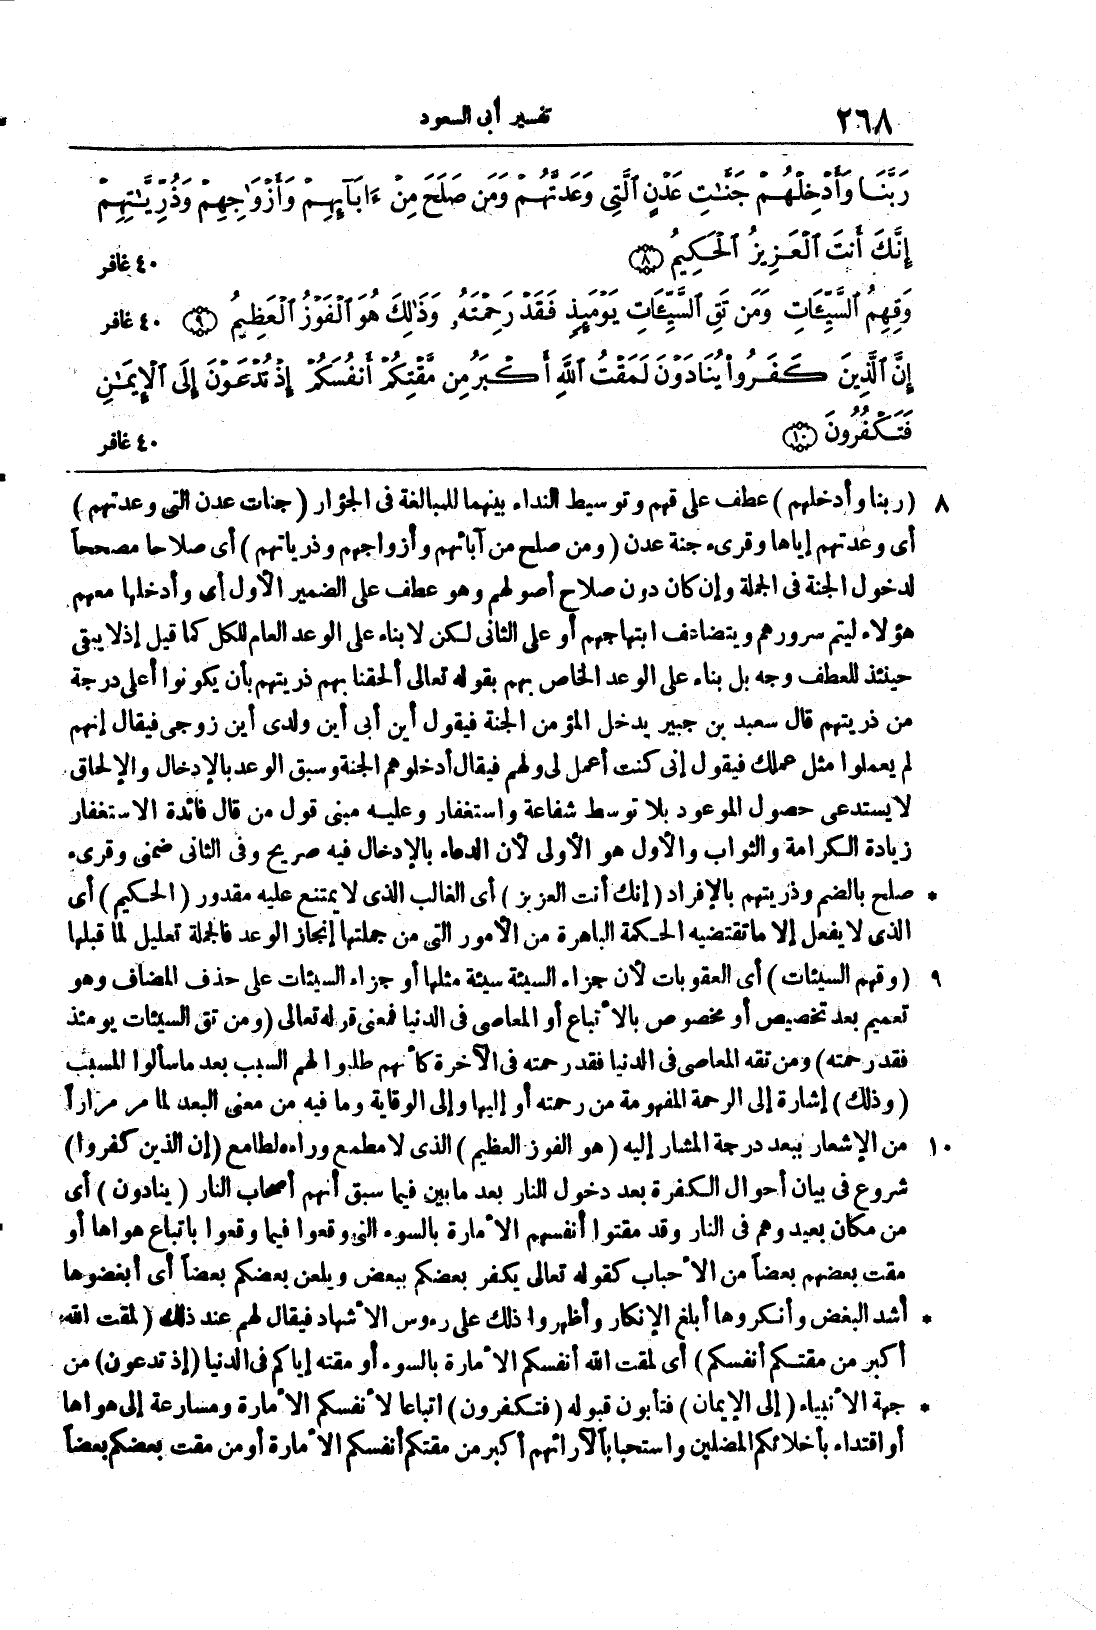 ٢٦٨
تفسير أبى السعود
رَبَّنَا وَأَدْخِلْهُمْ جَنَّٰتِ عَدْنٍ ٱلَّتِى وَعَدتَّهُمْ وَمَن صَلَحَ مِنْ ءَابَآئِهِمْ وَأَزْوَٰجِهِمْ وَذُرِّيَّٰتِهِمْ
إِنَّكَ أَنتَ ٱلْعَزِيزُ ٱلْحَكِيمُ ﴿٨﴾ ٤٠ غافر
وَقِهِمُ ٱلسَّيِّـَٔاتِ وَمَن تَقِ ٱلسَّيِّـَٔاتِ يَوْمَئِذٍ فَقَدْ رَحِمْتَهُۥ وَذَٰلِكَ هُوَ ٱلْفَوْزُ ٱلْعَظِيمُ ﴿٩﴾ ٤٠ غافر
إِنَّ ٱلَّذِينَ كَفَرُوا۟ يُنَادَوْنَ لَمَقْتُ ٱللَّهِ أَكْبَرُ مِن مَّقْتِكُمْ أَنفُسَكُمْ إِذْ تُدْعَوْنَ إِلَى ٱلْإِيمَٰنِ
فَتَكْفُرُونَ ﴿١٠﴾ ٤٠ غافر
٨ (ربنا وأدخلهم) عطف على قهم وتوسيط النداء بينهما للمبالغة فى الجؤار (جنات عدن التى وعدتهم)
أى وعدتهم إياها وقرىء جنة عدن (ومن صلح من آبائهم وأزواجهم وذرياتهم) أى صلاحا مصححاً
لدخول الجنة فى الجملة وإن كان دون صلاح أصولهم وهو عطف على الضمير الأول أى وأدخلها معهم
هؤلاء ليتم سرورهم ويتضاعف ابتهاجهم أو على الثانى لكن لا بناء على الوعد العام للكل كما قيل إذ لا يبقى
حينئذ للعطف وجه بل بناء على الوعد الخاص بهم بقوله تعالى ألحقنا بهم ذريتهم بأن يكونوا أعلى درجة
من ذريتهم قال سعيد بن جبير يدخل المؤمن الجنة فيقول أين أبى أين ولدى أين زوجى فيقال إنهم
لم يعملوا مثل عملك فيقول إنى كنت أعمل لى ولهم فيقال أدخلوهم الجنة وسبق الوعد بالإدخال والإلحاق
لا يستدعى حصول الموعود بلا توسط شفاعة واستغفار وعليه مبنى قول من قال فائدة الاستغفار
زيادة الكرامة والثواب والأول هو الأولى لأن الدعاء بالإدخال فيه صريح وفى الثانى ضمنى وقرىء
* صلح بالضم وذريتهم بالإفراد (إنك أنت العزيز) أى الغالب الذى لا يمتنع عليه مقدور (الحكيم) أى
الذى لا يفعل إلا ما تقتضيه الحكمة الباهرة من الأمور التى من جملتها إنجاز الوعد فالجملة تعليل لما قبلها
٩ (وقهم السيئات) أى العقوبات لأن جزاء السيئة سيئة مثلها أو جزاء السيئات على حذف المضاف وهو
تعميم بعد تخصيص أو مخصوص بالأتباع أو المعاصى فى الدنيا فمعنى قوله تعالى (ومن تق السيئات يومئذ
فقد رحمته) ومن تقه المعاصى فى الدنيا فقد رحمته فى الآخرة كأنهم طلبوا لهم السبب بعد ما سألوا المسبب
(وذلك) إشارة إلى الرحمة المفهومة من رحمته أو إليها وإلى الوقاية وما فيه من معنى البعد لما مر مراراً
١٠ من الإشعار ببعد درجة المشار إليه (هو الفوز العظيم) الذى لا مطمع وراءه لطامع (إن الذين كفروا)
شروع فى بيان أحوال الكفرة بعد دخول النار بعد ما بين فيما سبق أنهم أصحاب النار (ينادون) أى
من مكان بعيد وهم فى النار وقد مقتوا أنفسهم الأمارة بالسوء التى وقعوا فيما وقعوا باتباع هواها أو
مقت بعضهم بعضاً من الأحباب كقوله تعالى يكفر بعضكم ببعض ويلعن بعضكم بعضاً أى أبغضوها
* أشد البغض وأنكروها أبلغ الإنكار وأظهروا ذلك على رءوس الأشهاد فيقال لهم عند ذلك (لمقت الله
أكبر من مقتكم أنفسكم) أى لمقت الله أنفسكم الأمارة بالسوء أو مقته إياكم فى الدنيا (إذ تدعون) من
* جهة الأنبياء (إلى الإيمان) فتأبون قبوله (فتكفرون) اتباعا لأنفسكم الأمارة ومسارعة إلى هواها
أو اقتداء بأخلائكم المضلين واستحباباً لآرائهم أكبر من مقتكم أنفسكم الأمارة أو من مقت بعضكم بعضاً